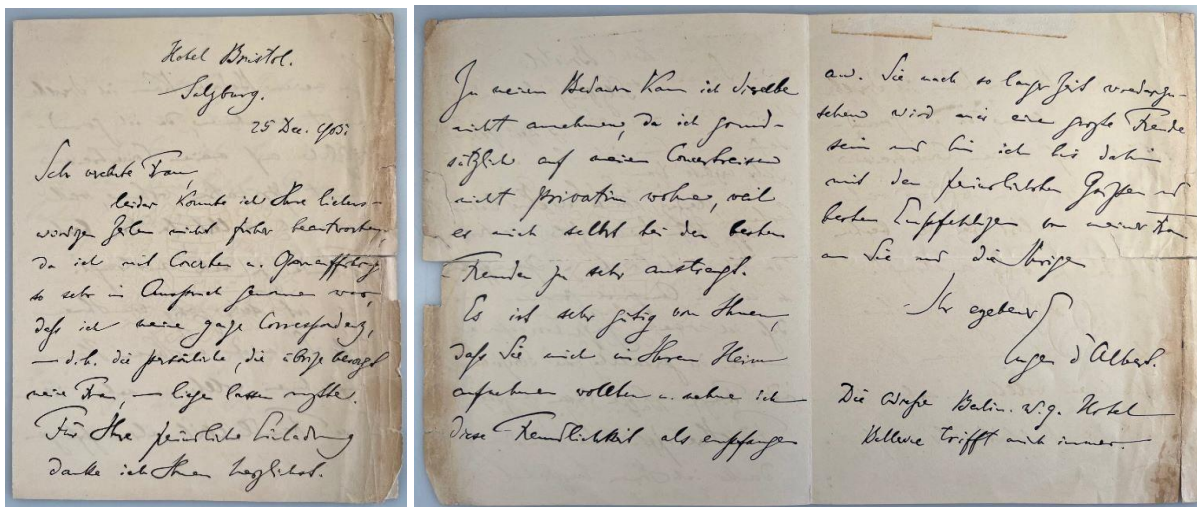 Hotel Bristol.
Salzburg.
25 Dec. 1905.
Sehr verehrte Frau,
leider konnte ich Ihre liebens-
würdigen Zeilen nicht früher beantworten,
da ich mit Concerten u. Opernaufführungen
so sehr in Anspruch genommen war,
daß ich meine ganze Correspondenz,
— d.h. die persönliche, die übrige besorgt
meine Frau, — liegen lassen mußte.
Für Ihre freundliche Einladung
danke ich Ihnen herzlichst.
Zu meinem Bedauern kann ich dieselbe
nicht annehmen, da ich grund-
sätzlich auf meinen Concertreisen
nicht privatim wohne, weil
es mich selbst bei den besten
Freunden zu sehr anstrengt.
Es ist sehr gütig von Ihnen,
daß Sie mich in Ihrem Heim
aufnehmen wollten u. nehme ich
diese Freundlichkeit als empfangen
an. Sie nach so langer Zeit wiederzu-
sehen wird mir eine große Freude
sein und bin ich bis dahin
mit den freundlichsten Grüßen und
besten Empfehlungen von meiner Frau
an Sie und die Übrigen
Ihr ergebener
Eugen d'Albert.
Die Adresse Berlin. W.9. Hotel
Bellevue trifft mich immer.